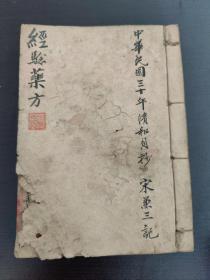 中華民國三十年清和月抄 宋蕙三記
經驗藥方